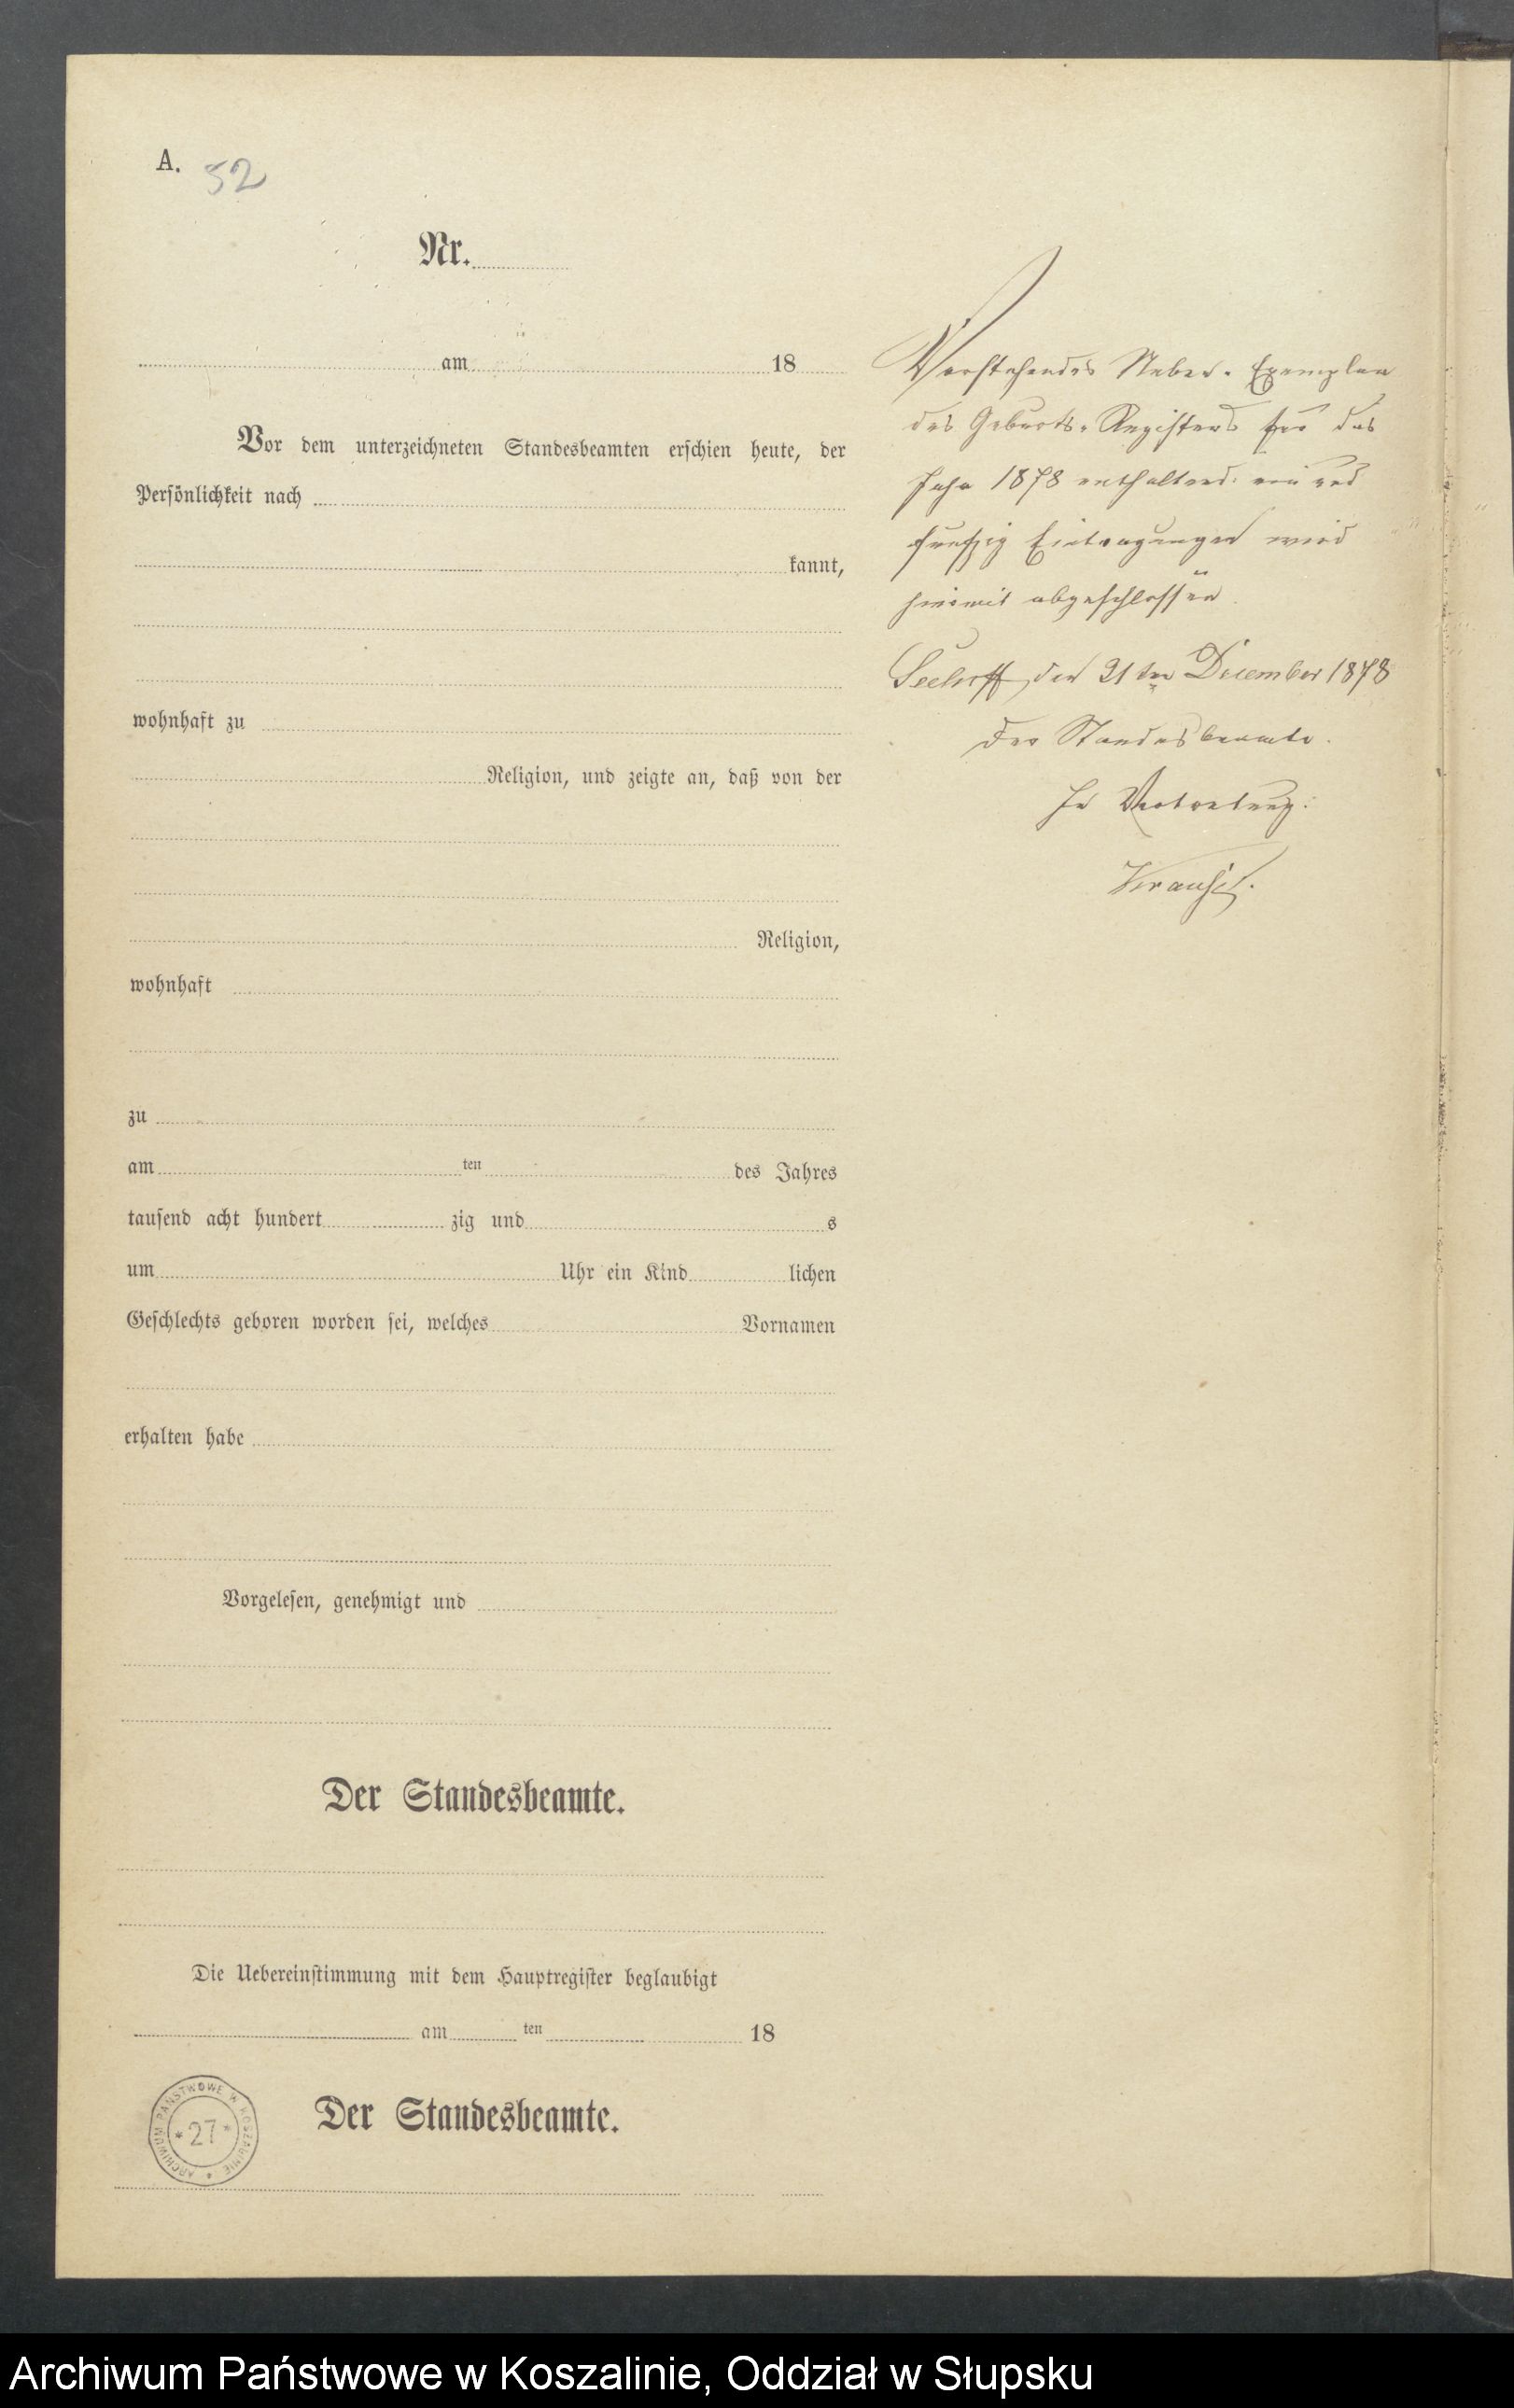 A. 52
Nr.
am 18
Vor dem unterzeichneten Standesbeamten erschien heute, der
Persönlichkeit nach
kannt,
wohnhaft zu
Religion, und zeigte an, daß von der
Religion,
wohnhaft
zu
am ten des Jahres
tausend acht hundert zig und s
um Uhr ein Kind lichen
Geschlechts geboren worden sei, welches Vornamen
erhalten habe
Vorgelesen, genehmigt und
Der Standesbeamte.
Die Uebereinstimmung mit dem Hauptregister beglaubigt
am ten 18
Der Standesbeamte.
ARCHIWUM PAŃSTWOWE W KOSZALINIE
* 27 *
Vorstehendes Neben-Exemplar
des Geburts-Registers für das
Jahr 1878 enthaltend ein und
funfzig Eintragungen wird
hiermit abgeschlossen.
Seehoff, den 31ten December 1878
Der Standesbeamte.
In Vertretung:
Archiwum Państwowe w Koszalinie, Oddział w Słupsku